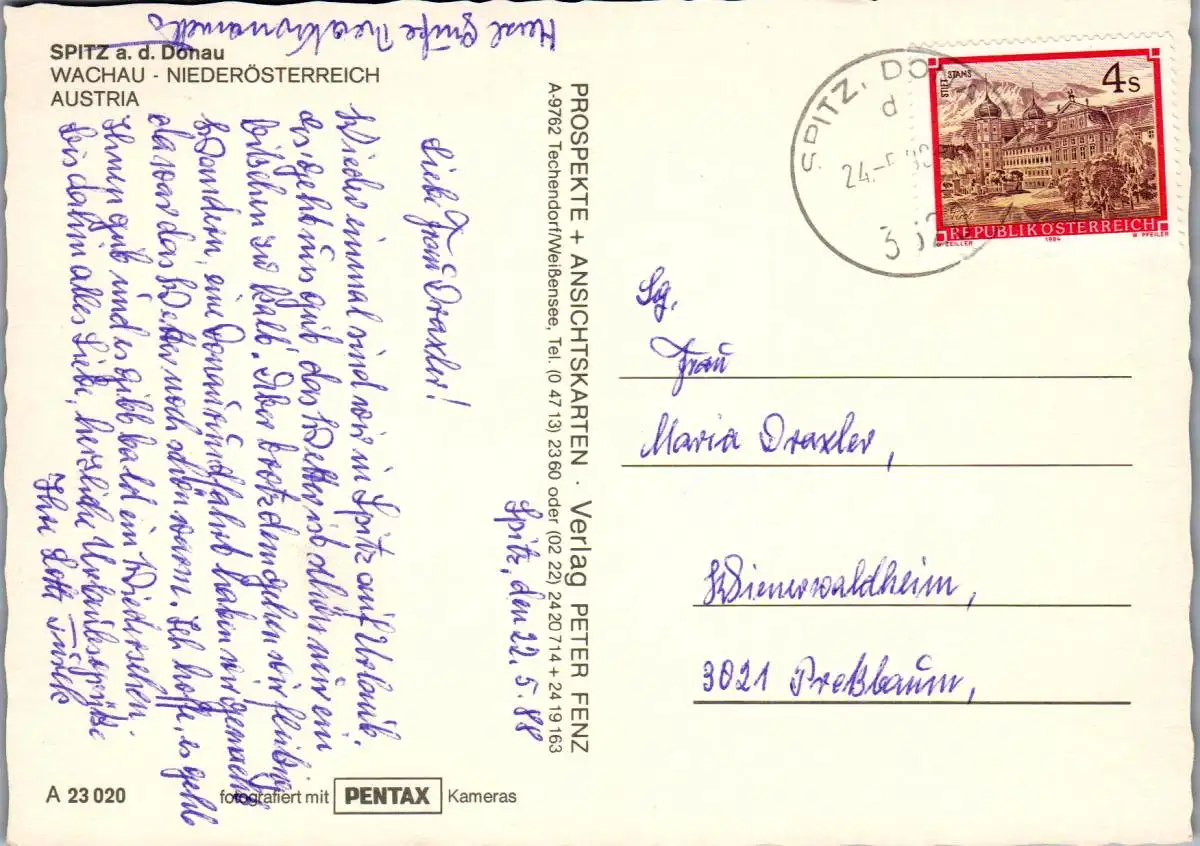 SPITZ a. d. Donau
WACHAU - NIEDERÖSTERREICH
AUSTRIA
Spitz, den 22. 5. 88
Liebe Frau Draxler!
Wieder einmal sind wir in Spitz auf Urlaub.
Es geht uns gut, das Wetter ist schön nur ein
bißchen zu kalt. Aber trotzdem gehen wir fleißig
Wandern, eine Donaurundfahrt haben wir gemacht
da war das Wetter noch schön warm. Ich hoffe, es geht
Ihnen gut und es gibt bald ein Wiedersehen.
Bis dahin alles Liebe, herzliche Urlaubsgrüße
Ihre Lotte Türck
Herzl Grüße
PROSPEKTE + ANSICHTSKARTEN · Verlag PETER FENZ
A-9762 Techendorf/Weißensee, Tel. (0 47 13) 23 60 oder (02 22) 24 20 714 + 24 19 163
A 23 020
fotografiert mit PENTAX Kameras
SPITZ, DO
d
24.-5.
STIFT STAMS
4 S
REPUBLIK ÖSTERREICH
O. ZEILLER 1984 W. PFEILER
Sg.
Frau
Maria Draxler,
Wienerwaldheim,
3021 Preßbaum,